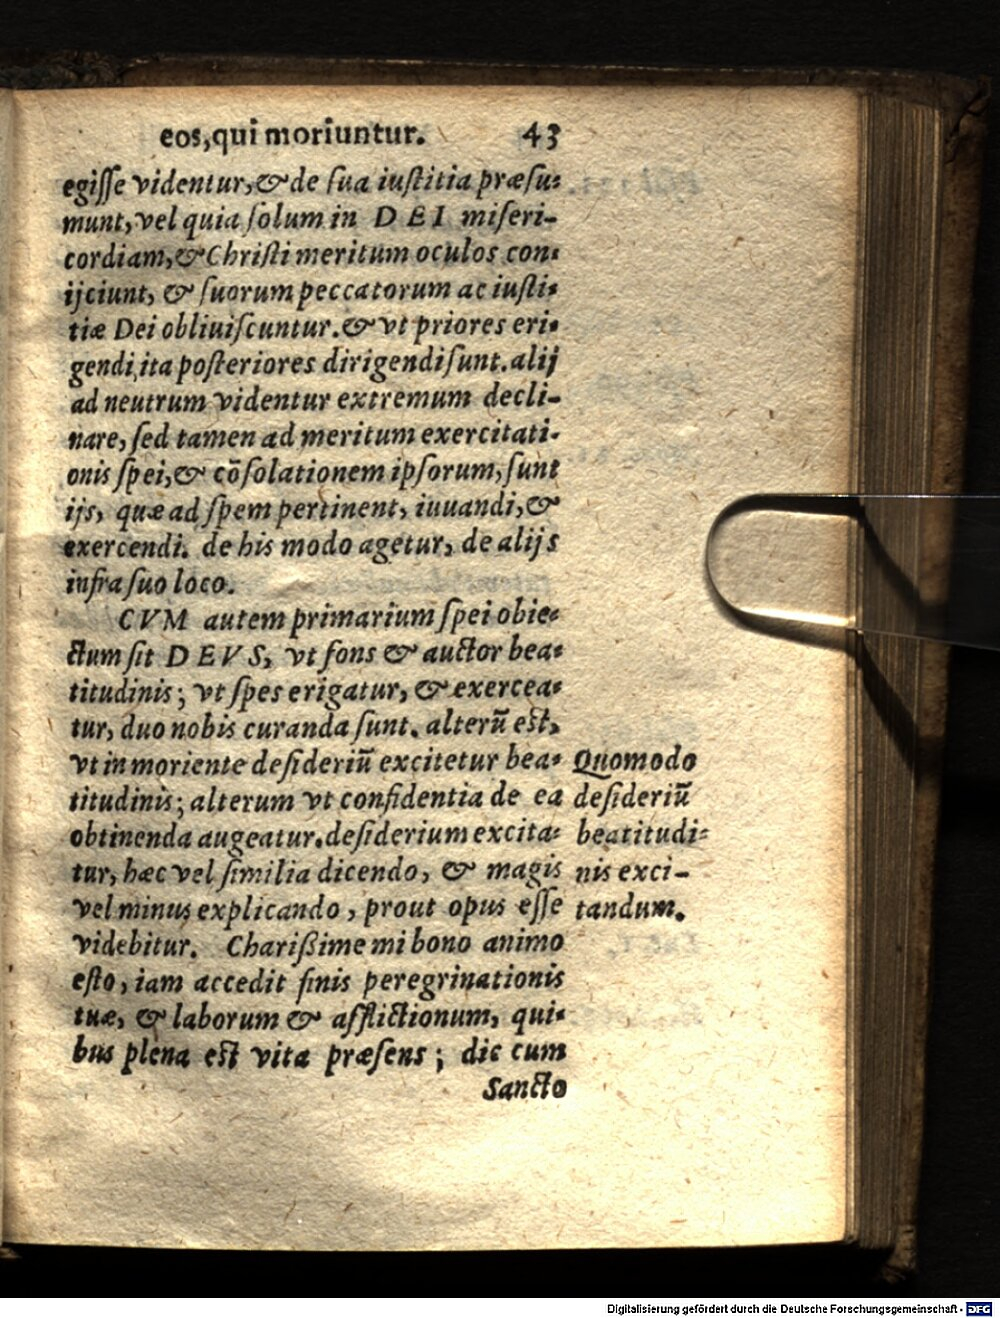 eos, qui moriuntur. 43
egiſſe videntur, & de ſua iuſtitia præſu-
munt, vel quia ſolum in DEI miſeri-
cordiam, & Chriſti meritum oculos con-
ijciunt, & ſuorum peccatorum ac iuſti-
tiæ Dei obliuiſcuntur. & vt priores eri-
gendi, ita poſteriores dirigendi ſunt. alij
ad neutrum videntur extremum decli-
nare, ſed tamen ad meritum exercitati-
onis ſpei, & cõſolationem ipſorum, ſunt
ijs, quæ ad ſpem pertinent, iuuandi, &
exercendi. de his modo agetur, de alijs
infra ſuo loco.
CVM autem primarium ſpei obie-
ctum ſit DEVS, vt fons & auctor bea-
titudinis; vt ſpes erigatur, & exercea-
tur, duo nobis curanda ſunt. alterũ eſt,
vt in moriente deſideriũ excitetur bea-
titudinis; alterum vt confidentia de ea
obtinenda augeatur. deſiderium excita-
tur, hæc vel ſimilia dicendo, & magis
vel minus explicando, prout opus eſſe
videbitur. Charißime mi bono animo
eſto, iam accedit finis peregrinationis
tuæ, & laborum & afflictionum, qui-
bus plena eſt vita præſens; dic cum
Sancto
Quomodo
deſideriũ
beatitudi-
nis exci-
tandum.
Digitalisierung gefördert durch die Deutsche Forschungsgemeinschaft - DFG